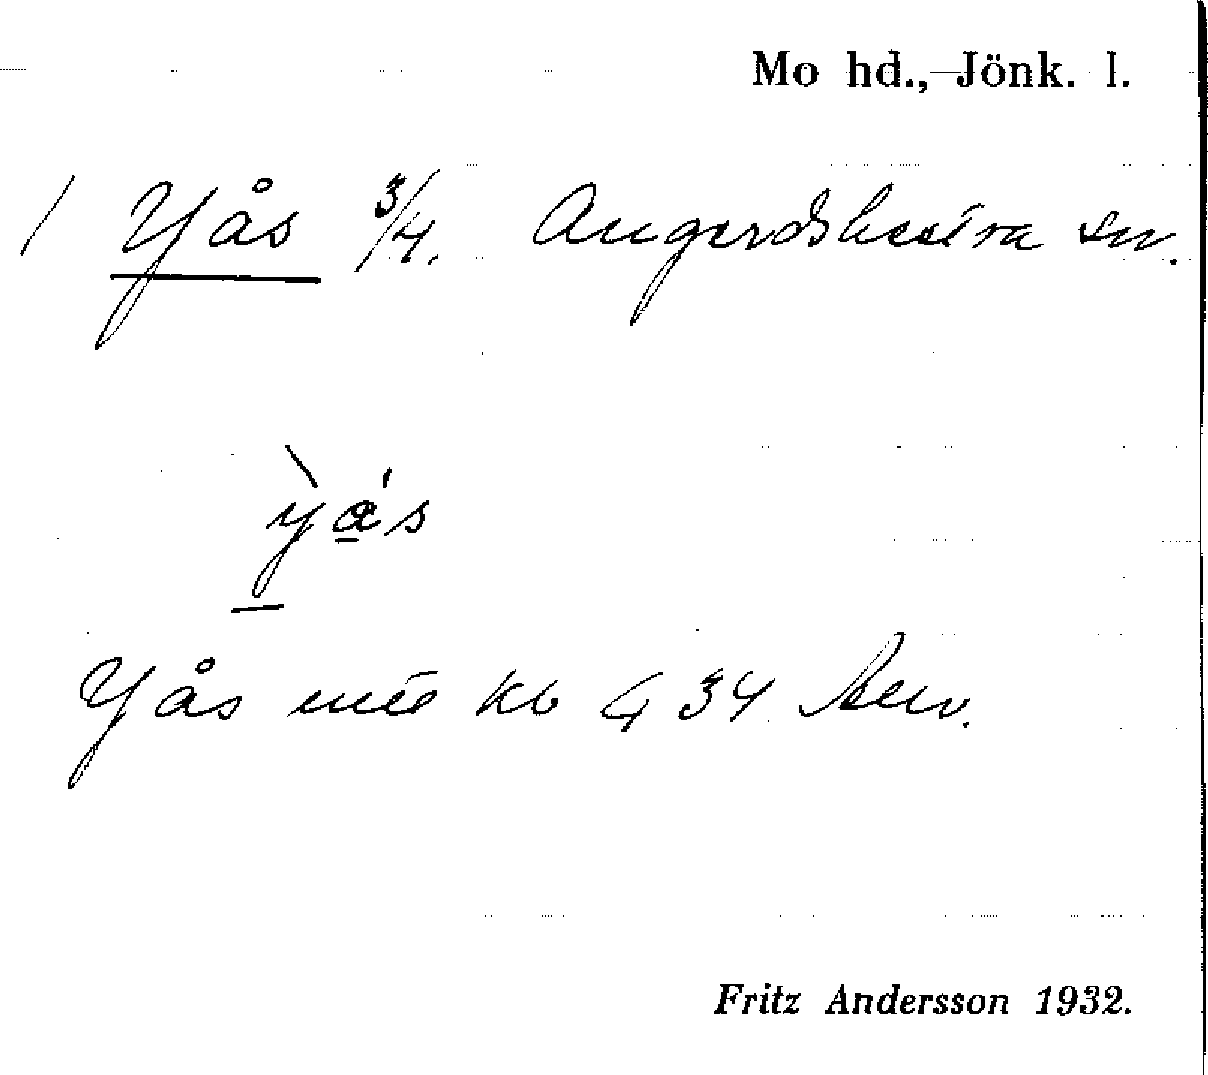 Mo hd., Jönk. l.
1 Yås 3/4. Angerdshestra sn.
yås
Yås mtl kb 4 34 Aew.
Fritz Andersson 1932.